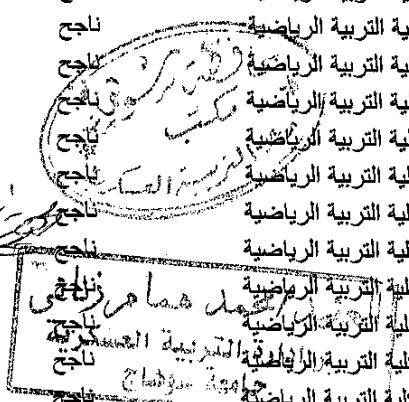 ية التربية الرياضية ناجح
ية التربية الرياضية ناجح
ية التربية الرياضية ناجح
لية التربية الرياضية ناجح
لية التربية الرياضية ناجح
لية التربية الرياضية ناجح
لية التربية الرياضية ناجح
كلية التربية الرياضية ناجح
كلية التربية الرياضية ناجح
كلية التربية الرياضية ناجح
كلية التربية الرياضية ناجح
مكتب
التربية العسكرية
محمد همام
إدارة التربية العسكرية
جامعة سوهاج